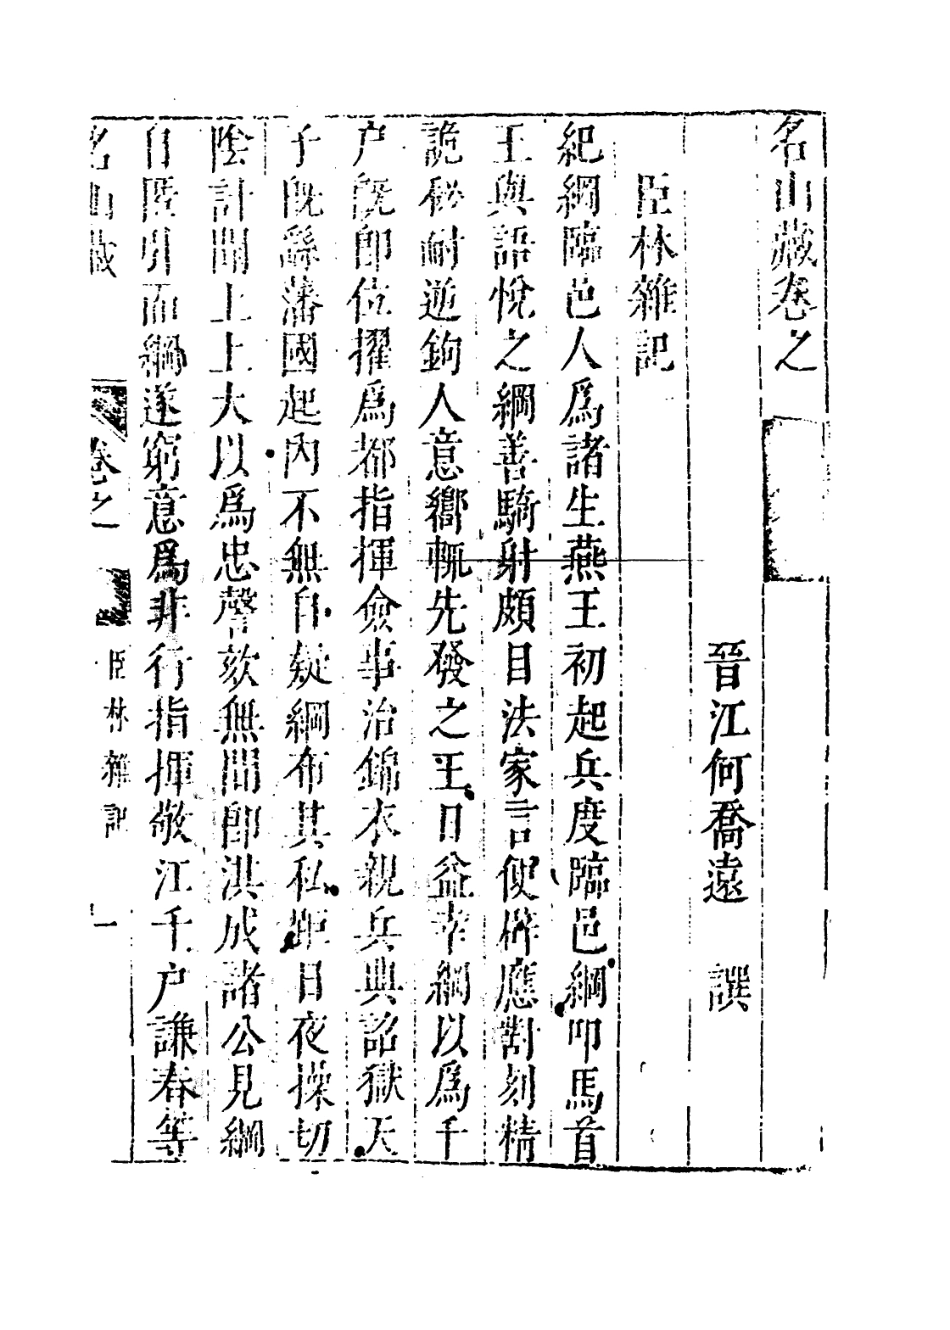 名山藏卷之
晉江何喬遠 譔
臣林雜記
紀綱臨邑人爲諸生燕王初起兵度臨邑綱叩馬首
王與語悅之綱善騎射頗目法家言便辟應對刻精
詭秘耐逆鉤人意嚮輒先發之王日益幸綱以爲千
户旣卽位擢爲都指揮僉事治錦衣親兵典詔獄天
子旣繇藩國起內不無自疑綱布其私距日夜操切
陰計聞上上大以爲忠謦欬無間卽淇成諸公見綱
自匿引而綱遂窮意爲非行指揮敬江千户謙春等
名山藏 卷之 臣林雜記 一